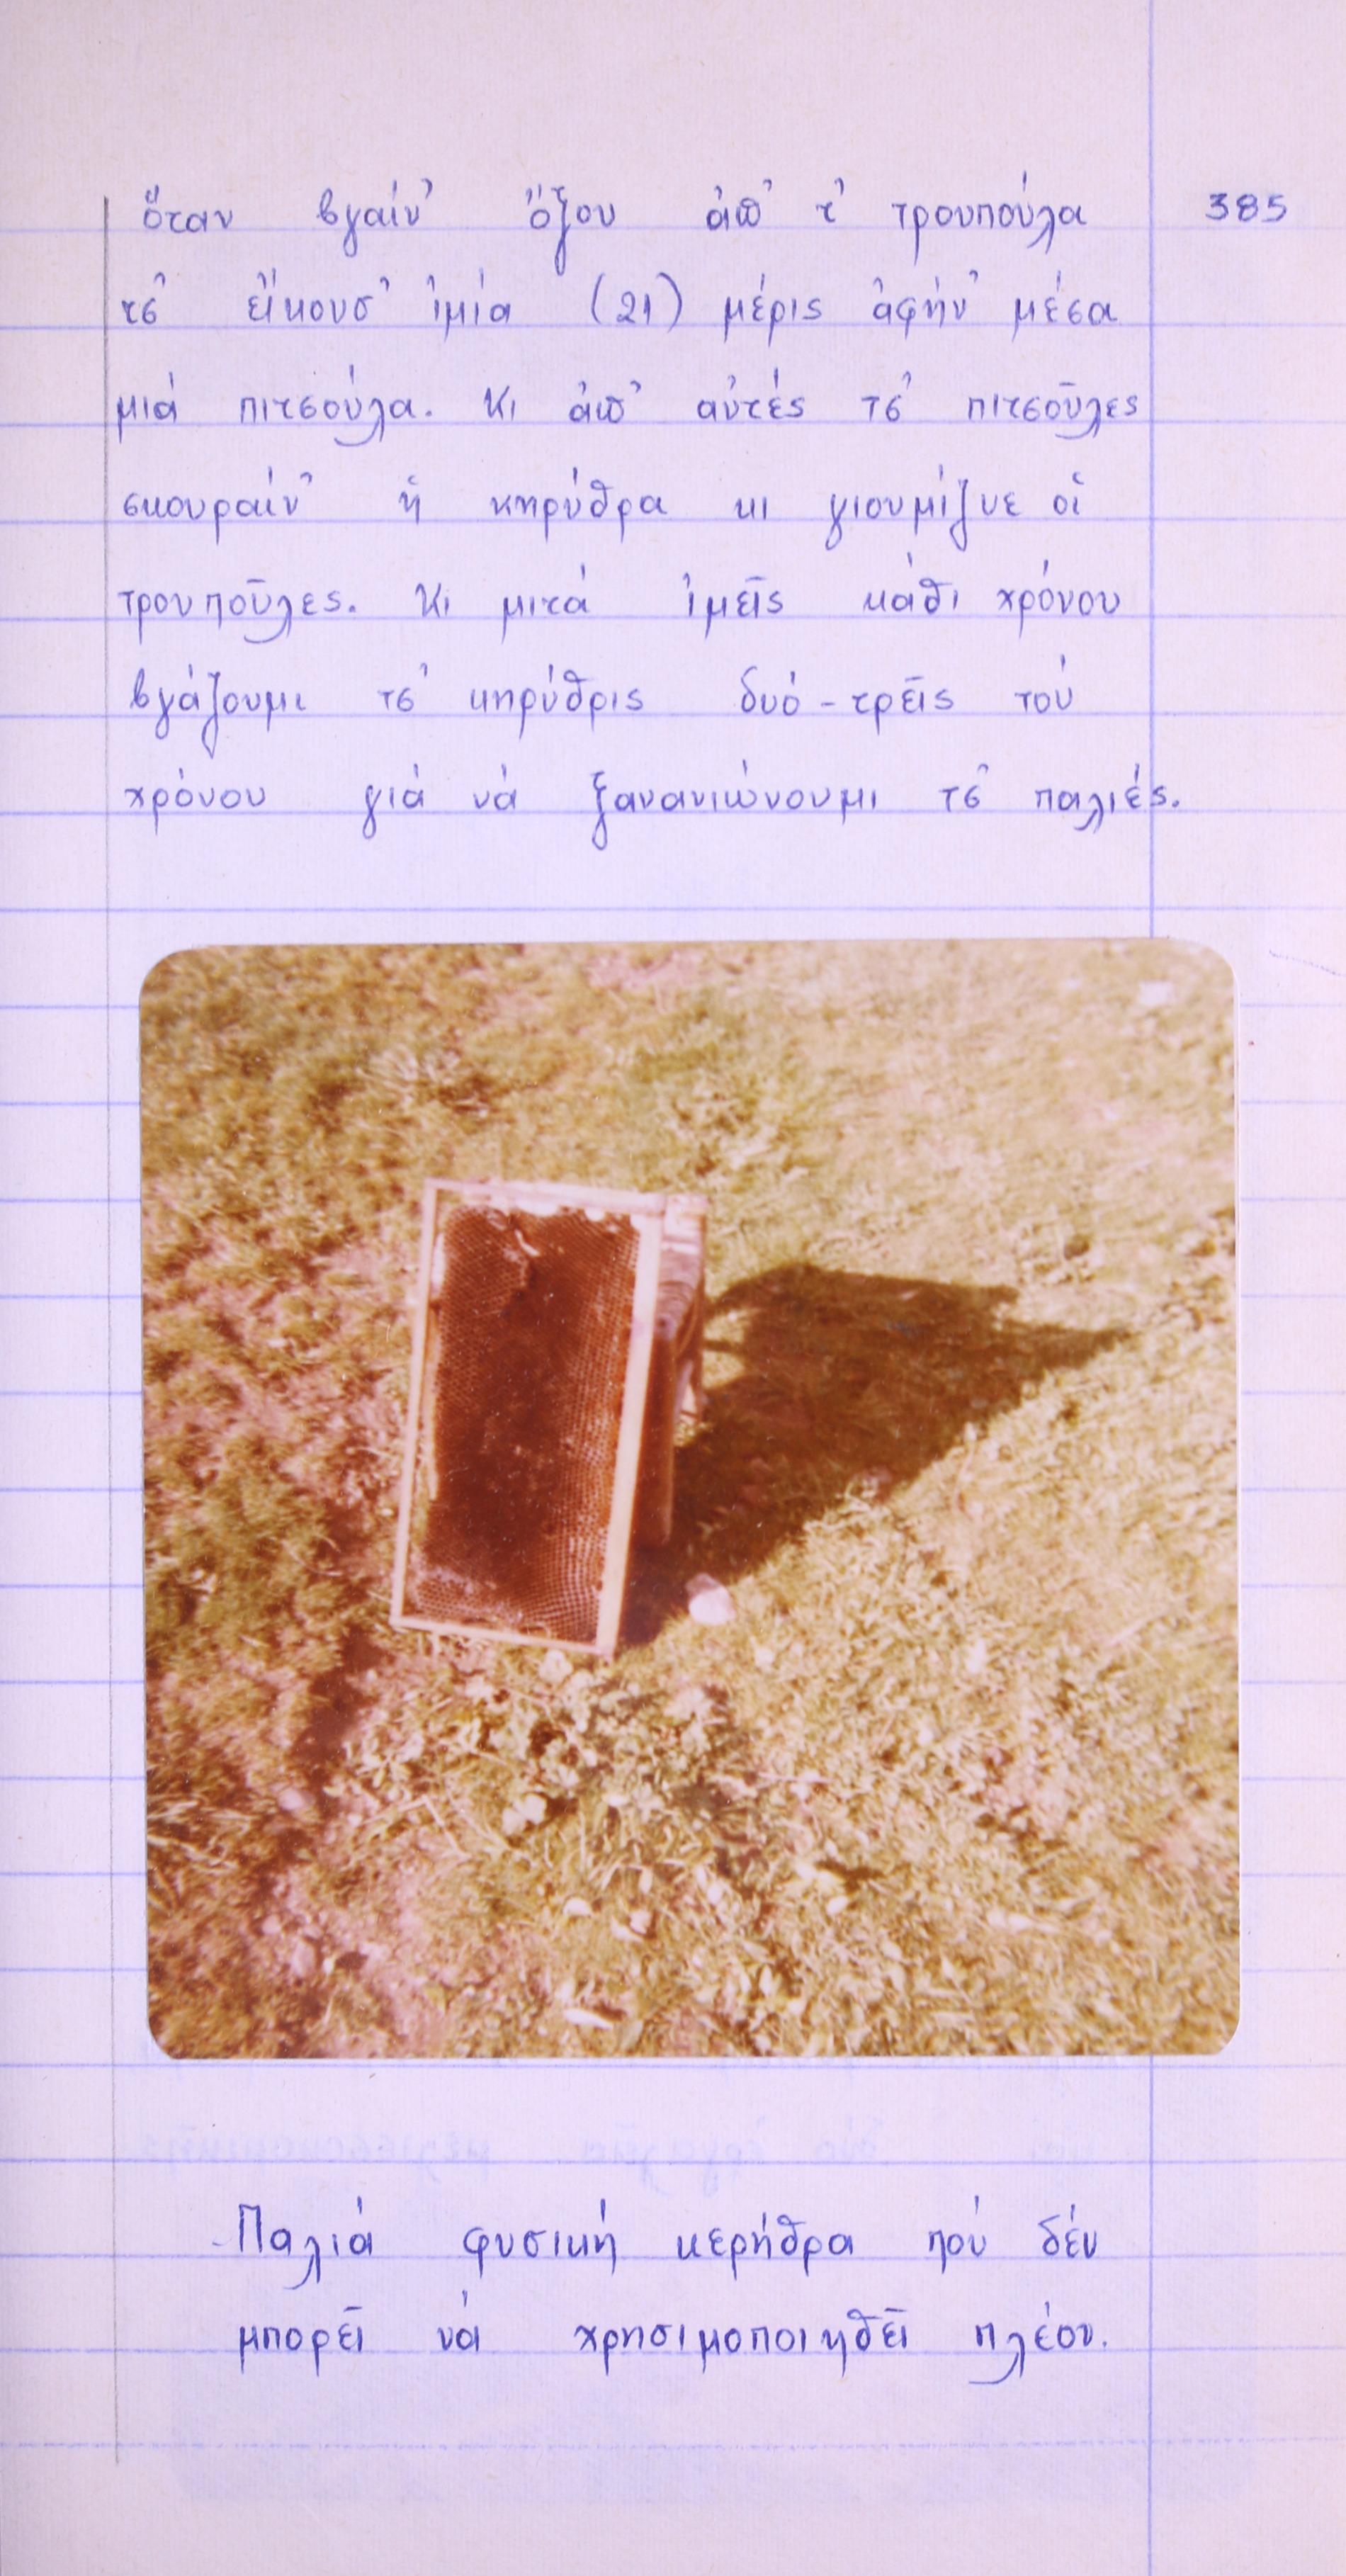 385
ὅταν βγαίν' ὄξου ἀπ' τ' τρουπούλα
τσ' εἴκουσ' ἱμία (21) μέρις ἀφήν' μέσα
μιά πιτσούλα. Κι ἀπ' αὐτές τσ' πιτσοῦλες
σκουραίν' ἡ κηρύθρα κι γιουμίζνε οἱ
τρουποῦλες. Κι μιτά ἰμεῖς κάθι χρόνου
βγάζουμι τσ' κηρύθρις δυό-τρεῖς τού
χρόνου γιά νά ξανανιώνουμι τσ' παλιές.
Παλιά φυσική κερήθρα πού δέν
μπορεῖ νά χρησιμοποιηθεῖ πλέον.